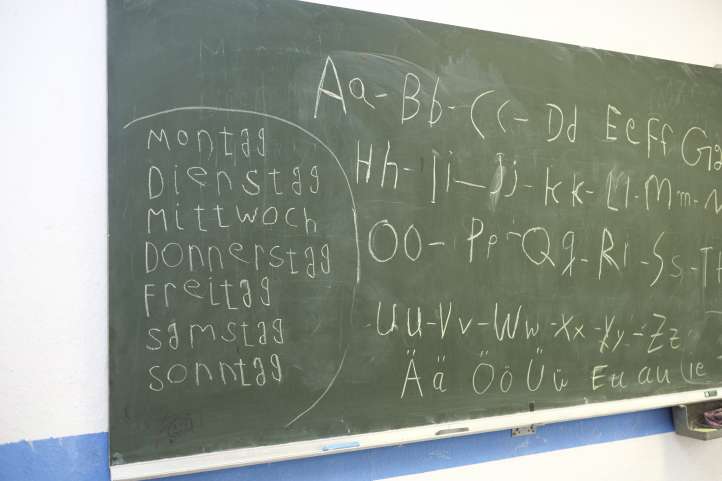 Montag
Dienstag
Mittwoch
Donnerstag
Freitag
samstag
sonntag
Aa - Bb - Cc - Dd Ee Ff Gg
Hh - Ii - Jj - kk - Ll - Mm - N
OO - Pp - Qq - Rr - Ss - Tt
Uu - Vv - Ww - Xx - Yy - Zz
Ää Öö Üü Eu au ie